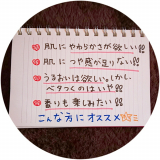 肌にやわらかさが欲しい!!
肌につや感が足りない!!
うるおいは欲しい。しかし、
ベタつくのはいや!!
香りも楽しみたい!!
こんな方にオススメ